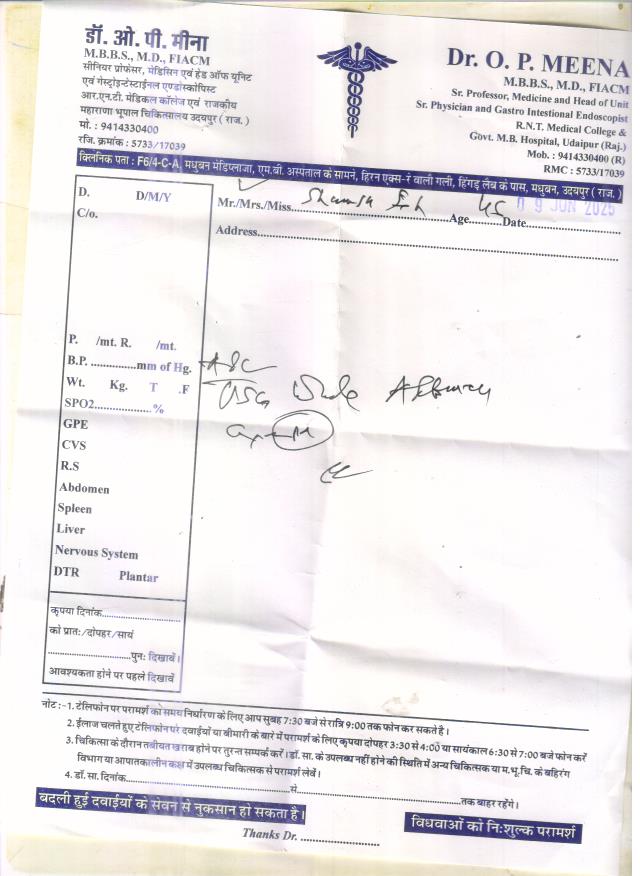 डॉ. ओ. पी. मीना
M.B.B.S., M.D., FIACM
सीनियर प्रोफेसर, मेडिसिन एवं हेड ऑफ यूनिट
एवं गेस्ट्रोइन्टेस्टाईनल एण्डोस्कोपिस्ट
आर.एन.टी. मेडिकल कॉलेज एवं राजकीय
महाराणा भूपाल चिकित्सालय उदयपुर ( राज. )
मो. : 9414330400
रजि. क्रमांक : 5733/17039
Dr. O. P. MEENA
M.B.B.S., M.D., FIACM
Sr. Professor, Medicine and Head of Unit
Sr. Physician and Gastro Intestional Endoscopist
R.N.T. Medical College &
Govt. M.B. Hospital, Udaipur (Raj.)
Mob. : 9414330400 (R)
RMC : 5733/17039
क्लिनिक पता : F6/4-C-A, मधुबन मेडिप्लाजा, एम.बी. अस्पताल के सामने, हिरन एक्स-रे वाली गली, हिंगड़ लैब के पास, मधुबन, उदयपुर ( राज. )
D. D/M/Y
C/o.
Mr./Mrs./Miss. Age Date 09 JUN 2025
Address
P. /mt. R. /mt.
B.P. mm of Hg.
Wt. Kg. T .F
SPO2 %
GPE
CVS
R.S
Abdomen
Spleen
Liver
Nervous System
DTR Plantar
USG Whole Abdomen
कृपया दिनांक
को प्रातः/दोपहर/सायं
पुनः दिखावें।
आवश्यकता होने पर पहले दिखावें
नोट :-1. टेलिफोन पर परामर्श का समय निर्धारण के लिए आप सुबह 7:30 बजे से रात्रि 9:00 तक फोन कर सकते है।
2. ईलाज चलते हुए टेलिफोन परे दवाईयों या बीमारी के बारे में परामर्श के लिए कृपया दोपहर 3:30 से 4:00 या सायंकाल 6:30 से 7:00 बजे फोन करें
3. चिकित्सा के दौरान तबीयत खराब होने पर तुरन्त सम्पर्क करें। डॉ. सा. के उपलब्ध नहीं होने की स्थिति में अन्य चिकित्सक या म.भू.चि. के बहिरंग
विभाग या आपातकालीन कक्ष में उपलब्ध चिकित्सक से परामर्श लेवें।
4. डॉ. सा. दिनांक से तक बाहर रहेंगे।
बदली हुई दवाईयों के सेवन से नुकसान हो सकता है।
विधवाओं को नि:शुल्क परामर्श
Thanks Dr.